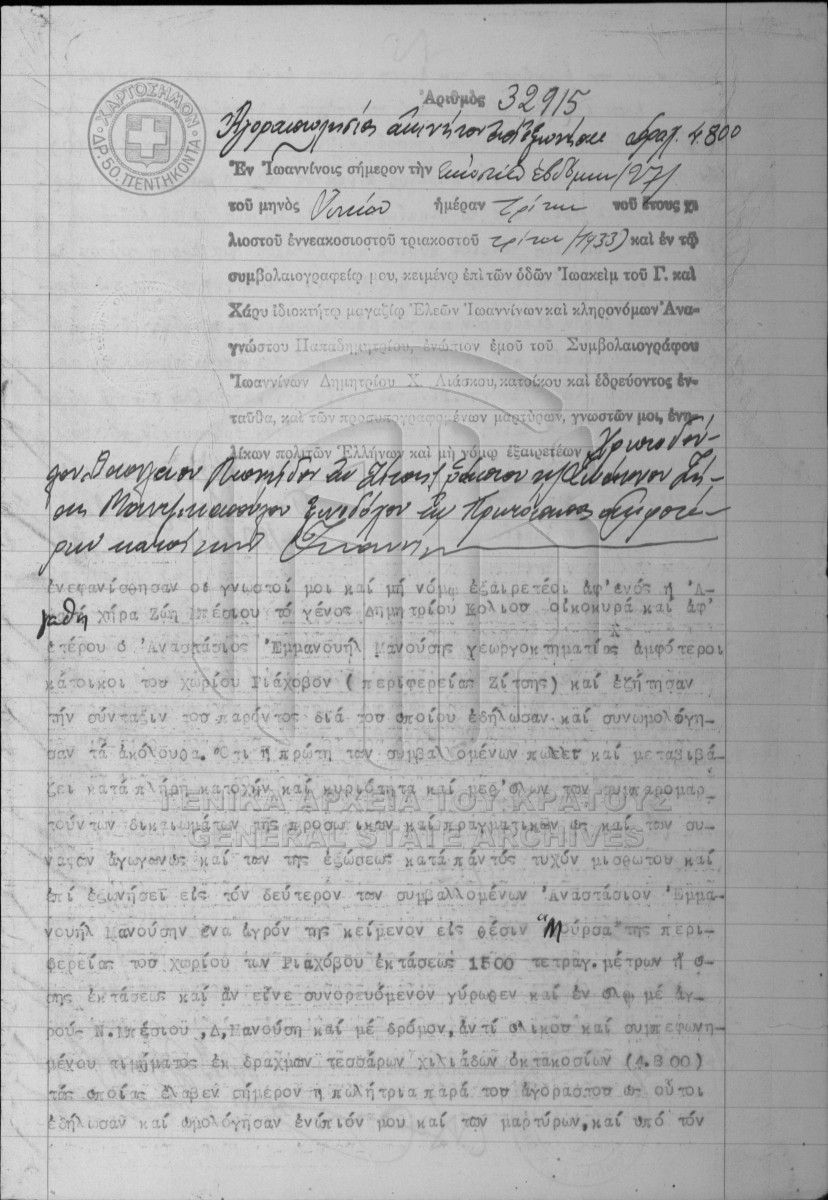 ΧΑΡΤΟΣΗΜΟΝ
ΔΡ. 50. ΠΕΝΤΗΚΟΝΤΑ
Ἀριθμὸς 32915
Ἀγοραπωλησίας ἀκινήτου ἐπὶ ἐξωνήσει δραχ. 4.800
Ἐν Ἰωαννίνοις σήμερον τὴν εἰκοστὴν ἑβδόμην (27)
τοῦ μηνὸς ἡμέραν Τρίτην τοῦ ἔτους χι
λιοστοῦ ἐννεακοσιοστοῦ τριακοστοῦ τρίτου (1933) καὶ ἐν τῷ
συμβολαιογραφείῳ μου, κειμένῳ ἐπὶ τῶν ὁδῶν Ἰωακεὶμ τοῦ Γ. καὶ
Χάρυ ἰδιοκτήτῳ μαγαζίῳ Ἐλεῶν Ἰωαννίνων καὶ κληρονόμων Ἀνα-
γνώστου Παπαδημητρίου, ἐνώπιον ἐμοῦ τοῦ Συμβολαιογράφου
Ἰωαννίνων Δημητρίου Χ. Λιάσκου, κατοίκου καὶ ἑδρεύοντος ἐν-
ταῦθα, καὶ τῶν προσυπογραφομένων μαρτύρων, γνωστῶν μοι, ἐνη-
λίκων πολιτῶν Ἑλλήνων καὶ μὴ νόμῳ ἐξαιρετέων Χριστοδού-
λου
ἐνεφανίσθησαν οἱ γνωστοί μοι καί μή νόμῳ ἐξαιρετέοι ἀφ'ἑνός ἡ Ἀ-
γαθή χήρα Ζώη Μπέσιου τό γένος Δημητρίου Κόλιου οἰκοκυρά καί ἀφ'
ἑτέρου ὁ Ἀναστάσιος Ἐμμανουήλ Μανούσης γεωργοκτηματίας ἀμφότεροι
κάτοικοι τοῦ χωρίου Ριάχοβον ( περιφερείας Ζίτσης) καί ἐζήτησαν
τήν σύνταξιν τοῦ παρόντος διά τοῦ ὁποίου ἐδήλωσαν καί συνωμολόγη-
σαν τά ἀκόλουθα. Ὅτι ἡ πρώτη τῶν συμβαλλομένων πωλεῖ καί μεταβιβά-
ζει κατά πλήρη κατοχήν καί κυριότητα καί μεθ'ὅλων τῶν συμπαρομαρ-
τούντων δικαιωμάτων της προσωπικῶν καί πραγματικῶν ὡς καί τῶν συ-
ναφῶν ἀγωγῶν ὡς καί τῶν τῆς ἐξώσεως κατά παντός τυχόν μισθωτοῦ καί
ἐπί ἐξωνήσει εἰς τόν δεύτερον τῶν συμβαλλομένων Ἀναστάσιον Ἐμμα-
νουήλ Μανούσην ἕνα ἀγρόν της κείμενον εἰς θέσιν "Μούρσα" τῆς περι-
φερείας τοῦ χωρίου των Ριαχόβου ἐκτάσεως 1500 τετραγ. μέτρων ἤ ὅ-
σης ἐκτάσεως καί ἄν εἶνε συνορευόμενον γύρωθεν καί ἐν ὅλῳ μέ ἀγ-
ρού- Ν.Μπέσιου ,Δ,Μανούση καί μέ δρόμον, ἀντί ὁλικοῦ καί συμπεφωνη-
μένου τιμήματος ἐκ δραχμῶν τεσσάρων χιλιάδων ὀκτακοσίων (4.800)
τάς ὁποίας ἔλαβεν σήμερον ἡ πωλήτρια παρά τοῦ ἀγοραστοῦ ὡς οὗτοι
ἐδήλωσαν καί ὡμολόγησαν ἐνώπιόν μου καί τῶν μαρτύρων, καί ὑπό τόν
ΓΕΝΙΚΑ ΑΡΧΕΙΑ ΤΟΥ ΚΡΑΤΟΥΣ
GENERAL STATE ARCHIVES